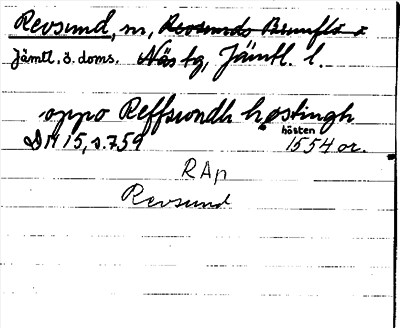 Revsund, m, Revsunds Brunflo x
Jämtl. ö. doms. Näs tg, Jämtl. l.
oppo Reffswndh høstingh
hösten
DN 15, s. 759 1554 or.
RAp
Revsund